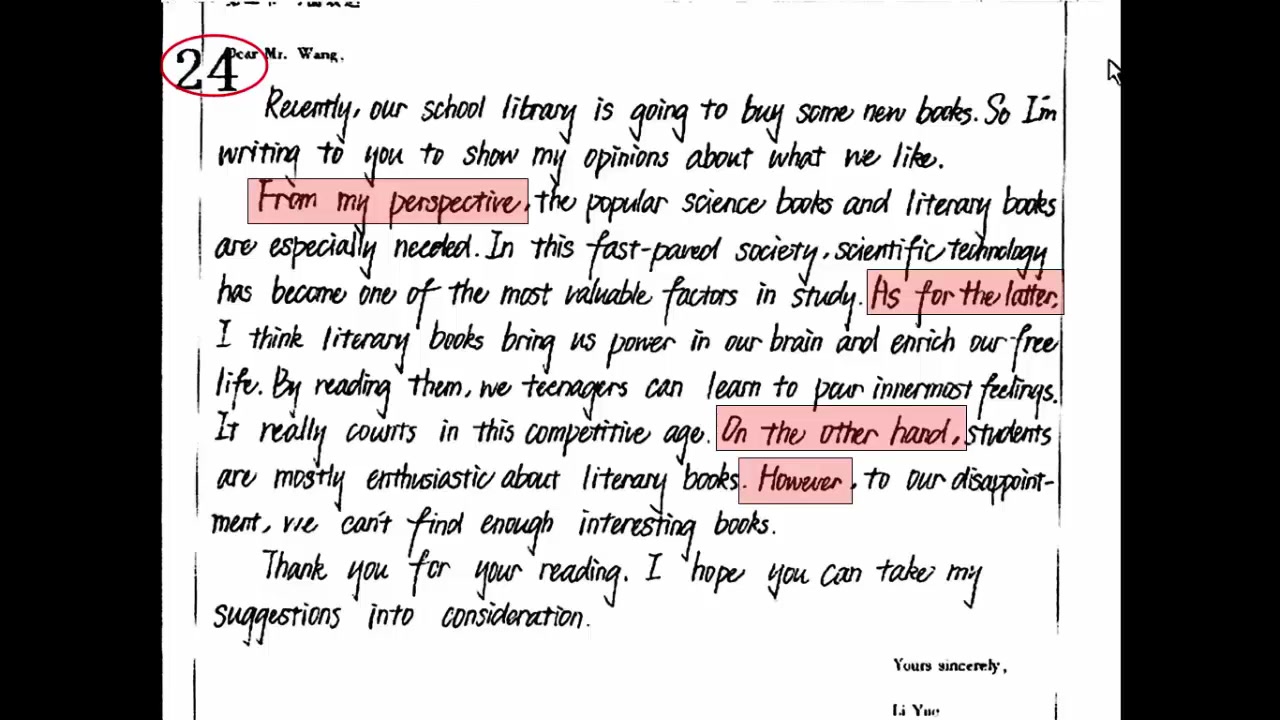 24
Dear Mr. Wang,
Recently, our school library is going to buy some new books. So I'm
writing to you to show my opinions about what we like.
From my perspective, the popular science books and literary books
are especially needed. In this fast-paved society, scientific technology
has become one of the most valuable factors in study. As for the latter,
I think literary books bring us power in our brain and enrich our free
life. By reading them, we teenagers can learn to pour innermost feelings.
It really counts in this competitive age. On the other hand, students
are mostly enthusiastic about literary books. However, to our disappoint-
ment, we can't find enough interesting books.
Thank you for your reading. I hope you can take my
suggestions into consideration.
Yours sincerely,
Li Yue